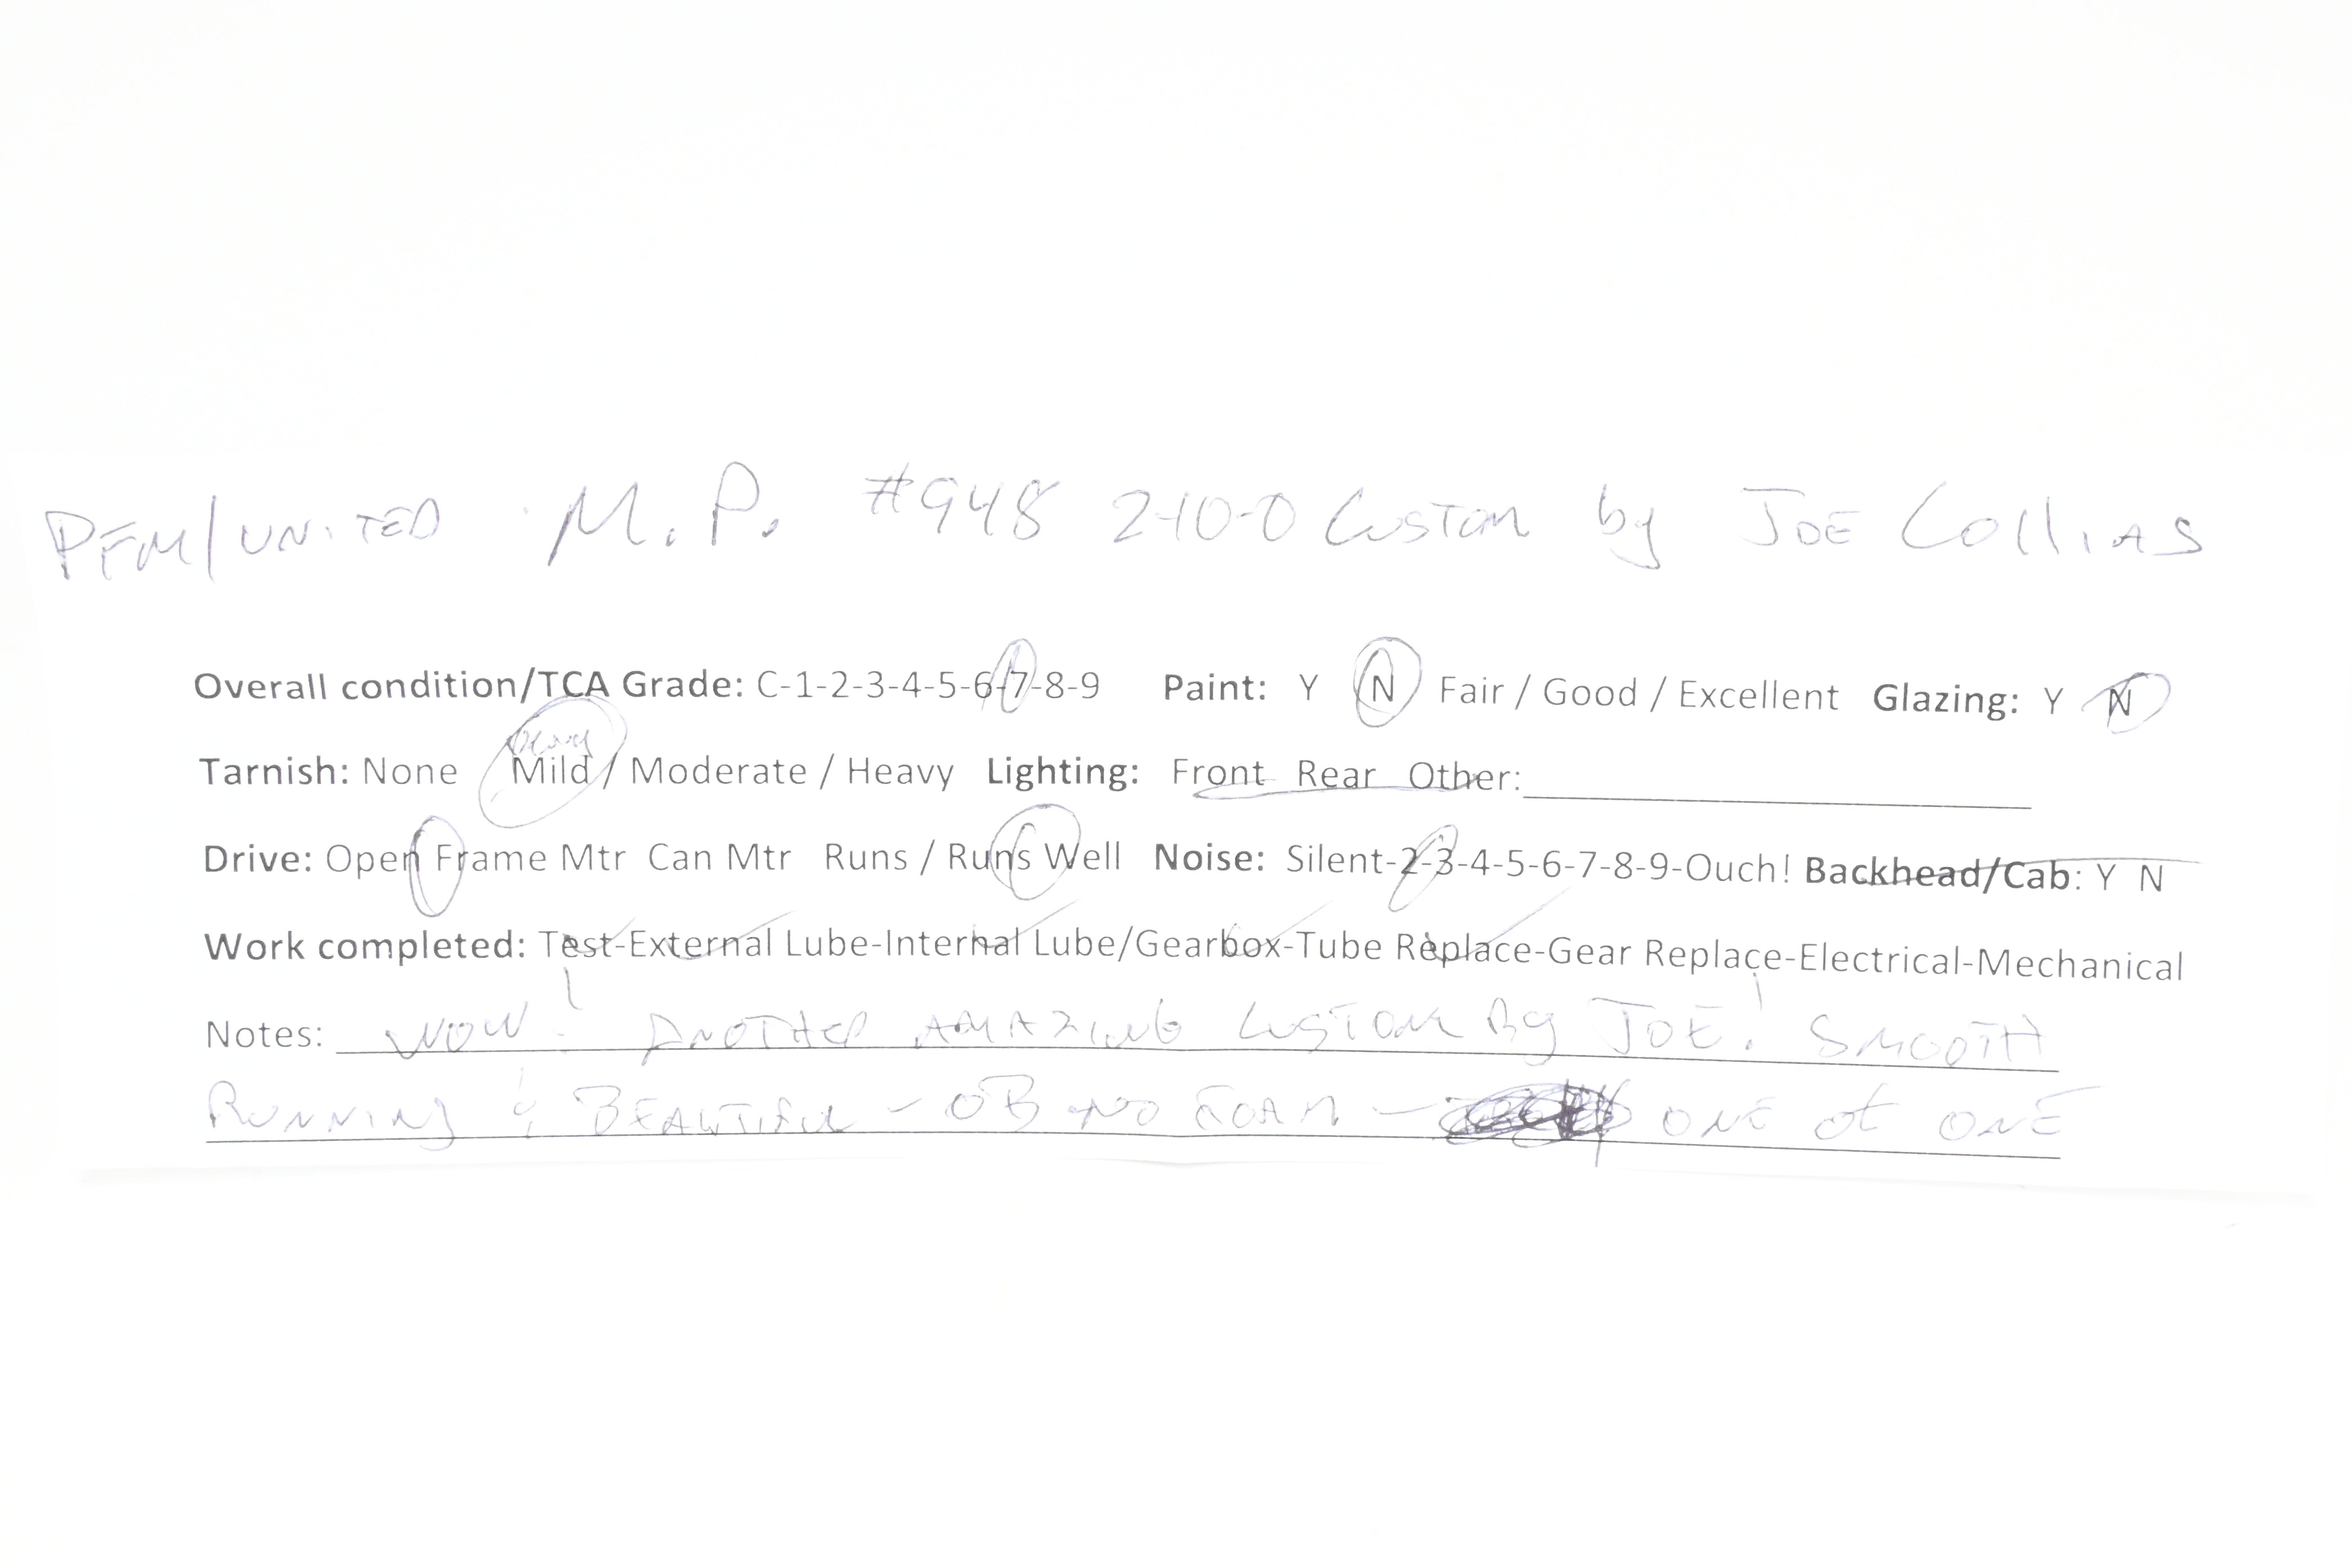 PFM/UNITED M.P. #948 2-10-0 Custom by JOE Collins
Overall condition/TCA Grade: C-1-2-3-4-5-6-7-8-9 Paint: Y N Fair / Good / Excellent Glazing: Y N
Tarnish: None / Mild / Moderate / Heavy Lighting: Front Rear Other:
Drive: Open Frame Mtr Can Mtr Runs / Runs Well Noise: Silent-2-3-4-5-6-7-8-9-Ouch! Backhead/Cab: Y N
Work completed: Test-External Lube-Internal Lube/Gearbox-Tube Replace-Gear Replace-Electrical-Mechanical
Notes: WOW! ANOTHER AMAZING CUSTOM By JOE! SMOOTH
RUNNING & BEAUTIFUL - OB NO FOAM - ONE of ONE